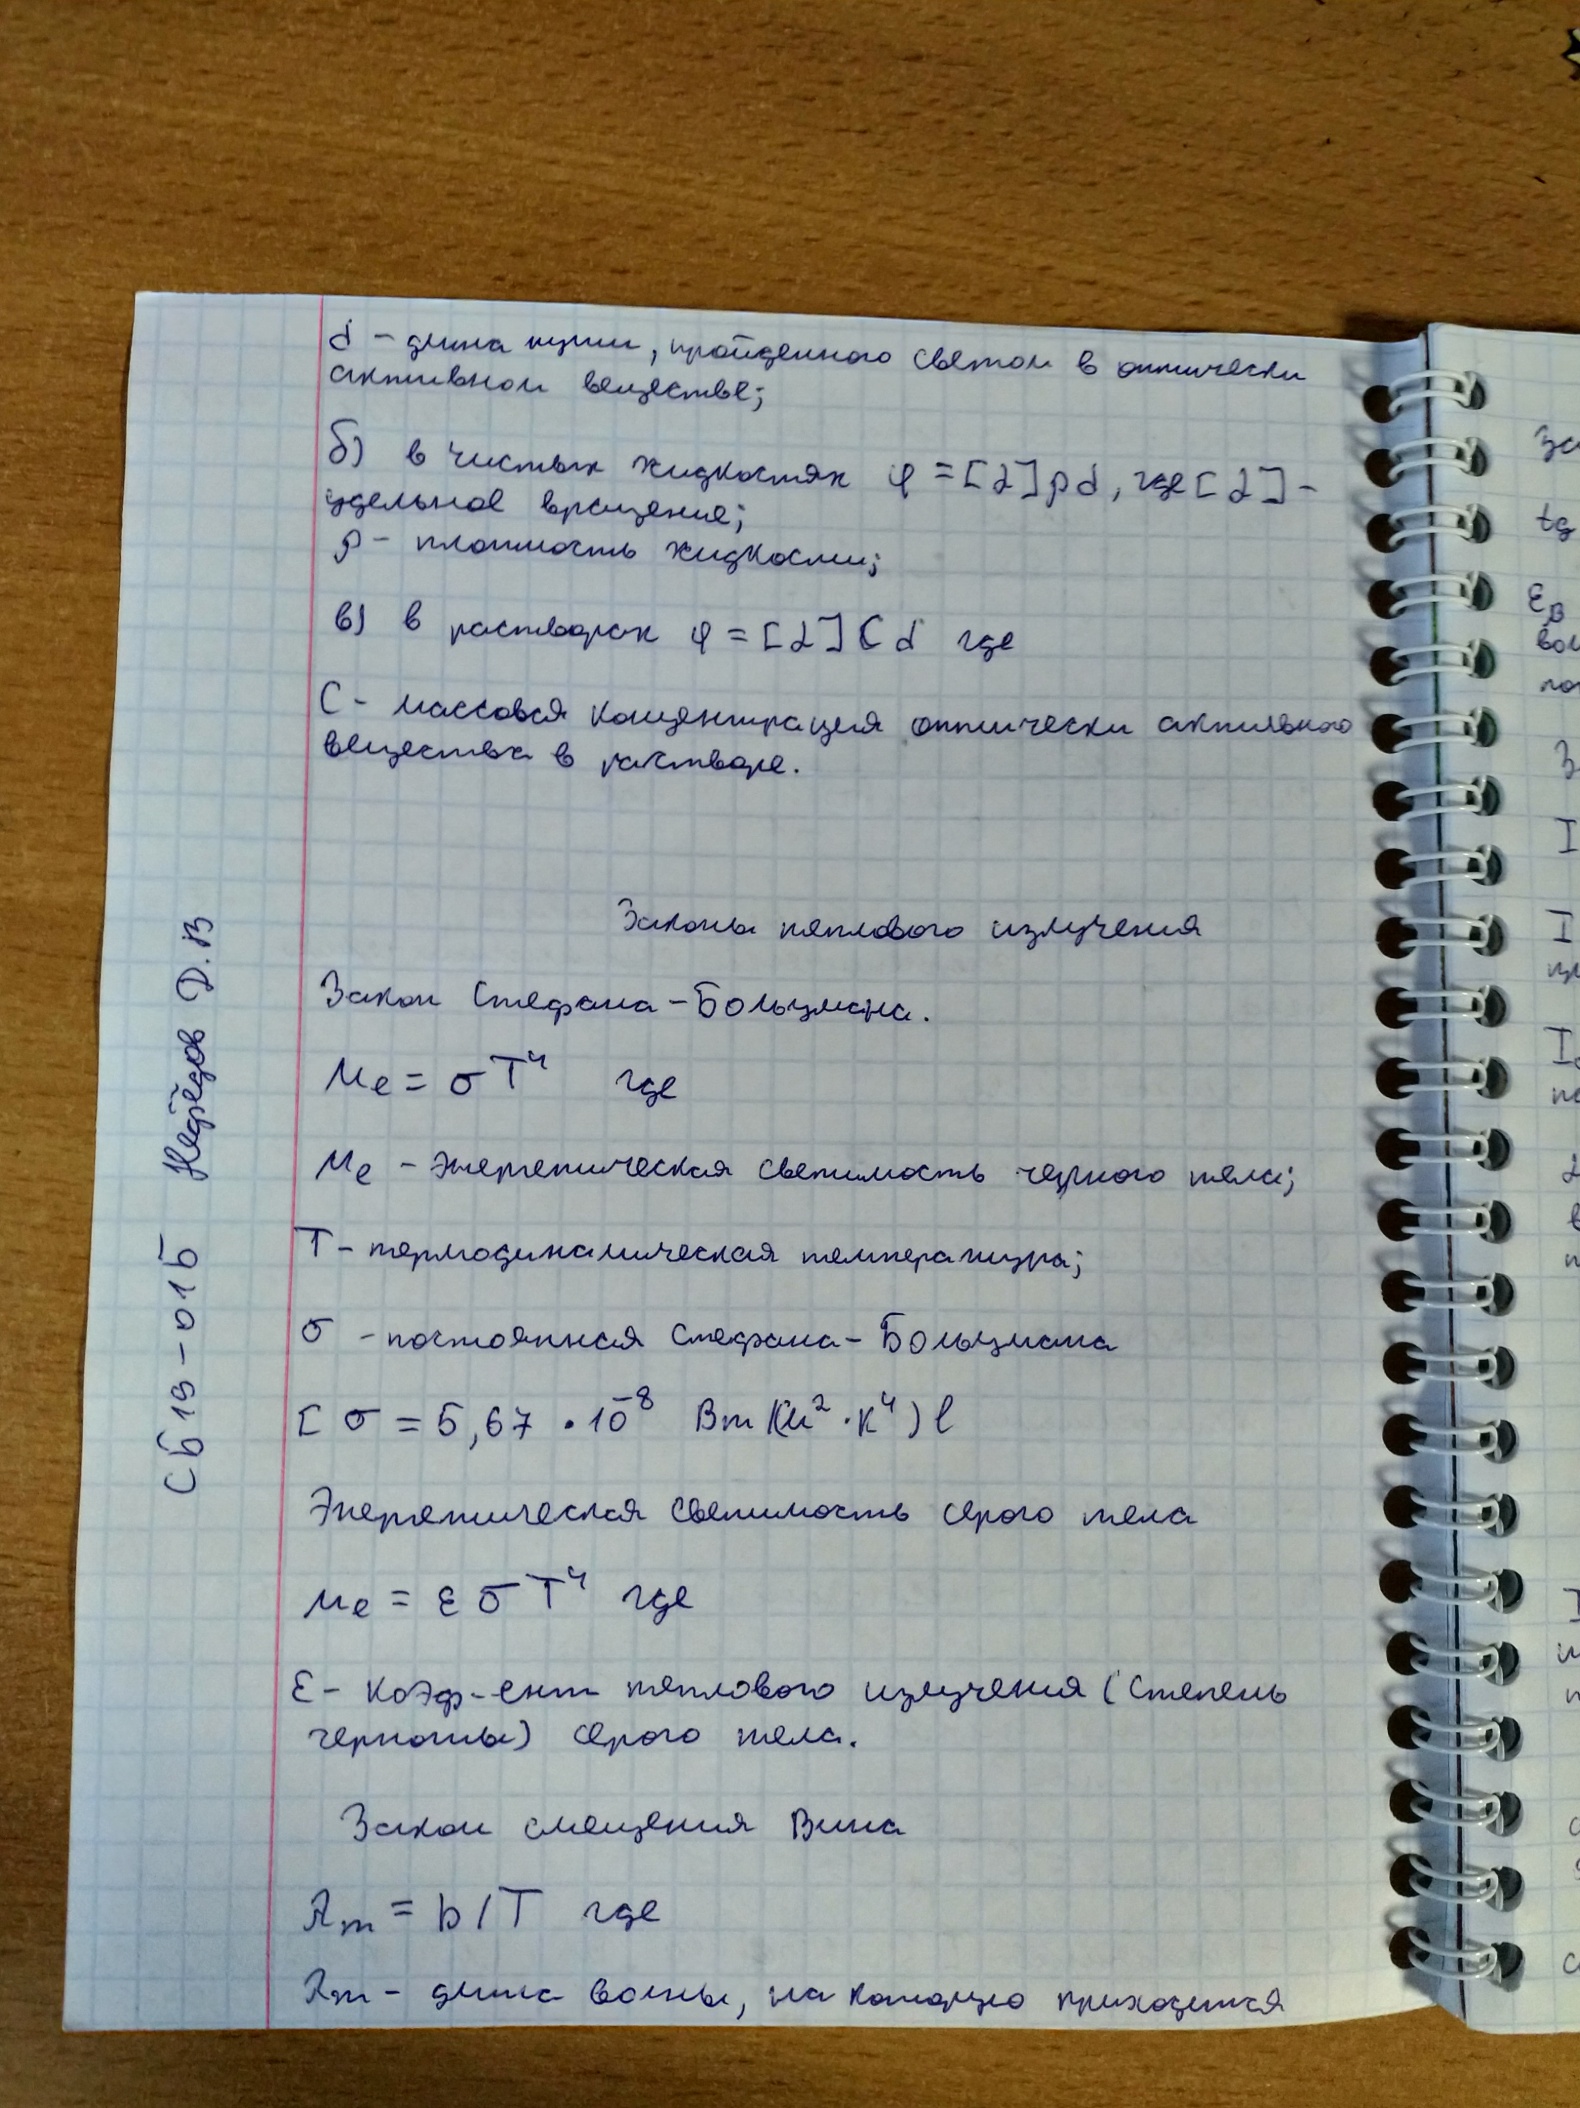 d - длина пути, пройденного светом в оптически
активном веществе;
б) в чистых жидкостях φ = [α]ρd, где [α] -
удельное вращение;
ρ - плотность жидкости;
в) в растворах φ = [α]Cd где
C - массовая концентрация оптически активного
вещества в растворе.
Законы теплового излучения
Закон Стефана-Больцмана.
Me = σT⁴ где
Me - энергетическая светимость черного тела;
T - термодинамическая температура;
σ - постоянная Стефана-Больцмана
[σ = 5,67 · 10⁻⁸ Вт/(м²·К⁴)]
Энергетическая светимость серого тела
Me = εσT⁴ где
ε - коэф-ент теплового излучения (степень
черноты) серого тела.
Закон смещения Вина
λm = b/T где
λm - длина волны, на которую приходится
Сб19-01Б Нефёдов Д.В
за
tg
εв
I
I